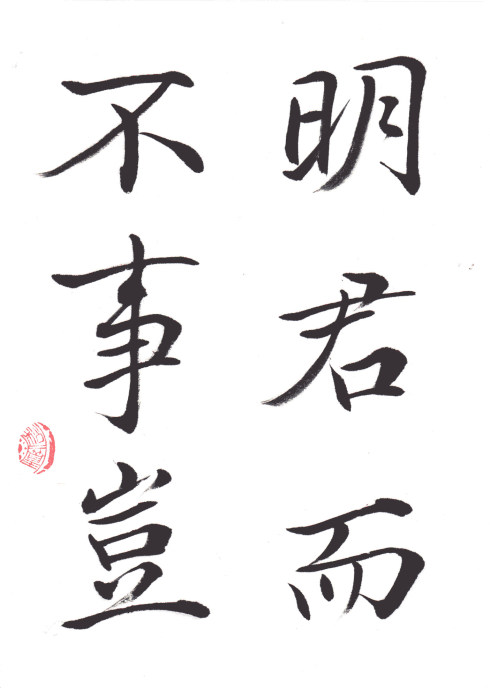 明君而
不事豈